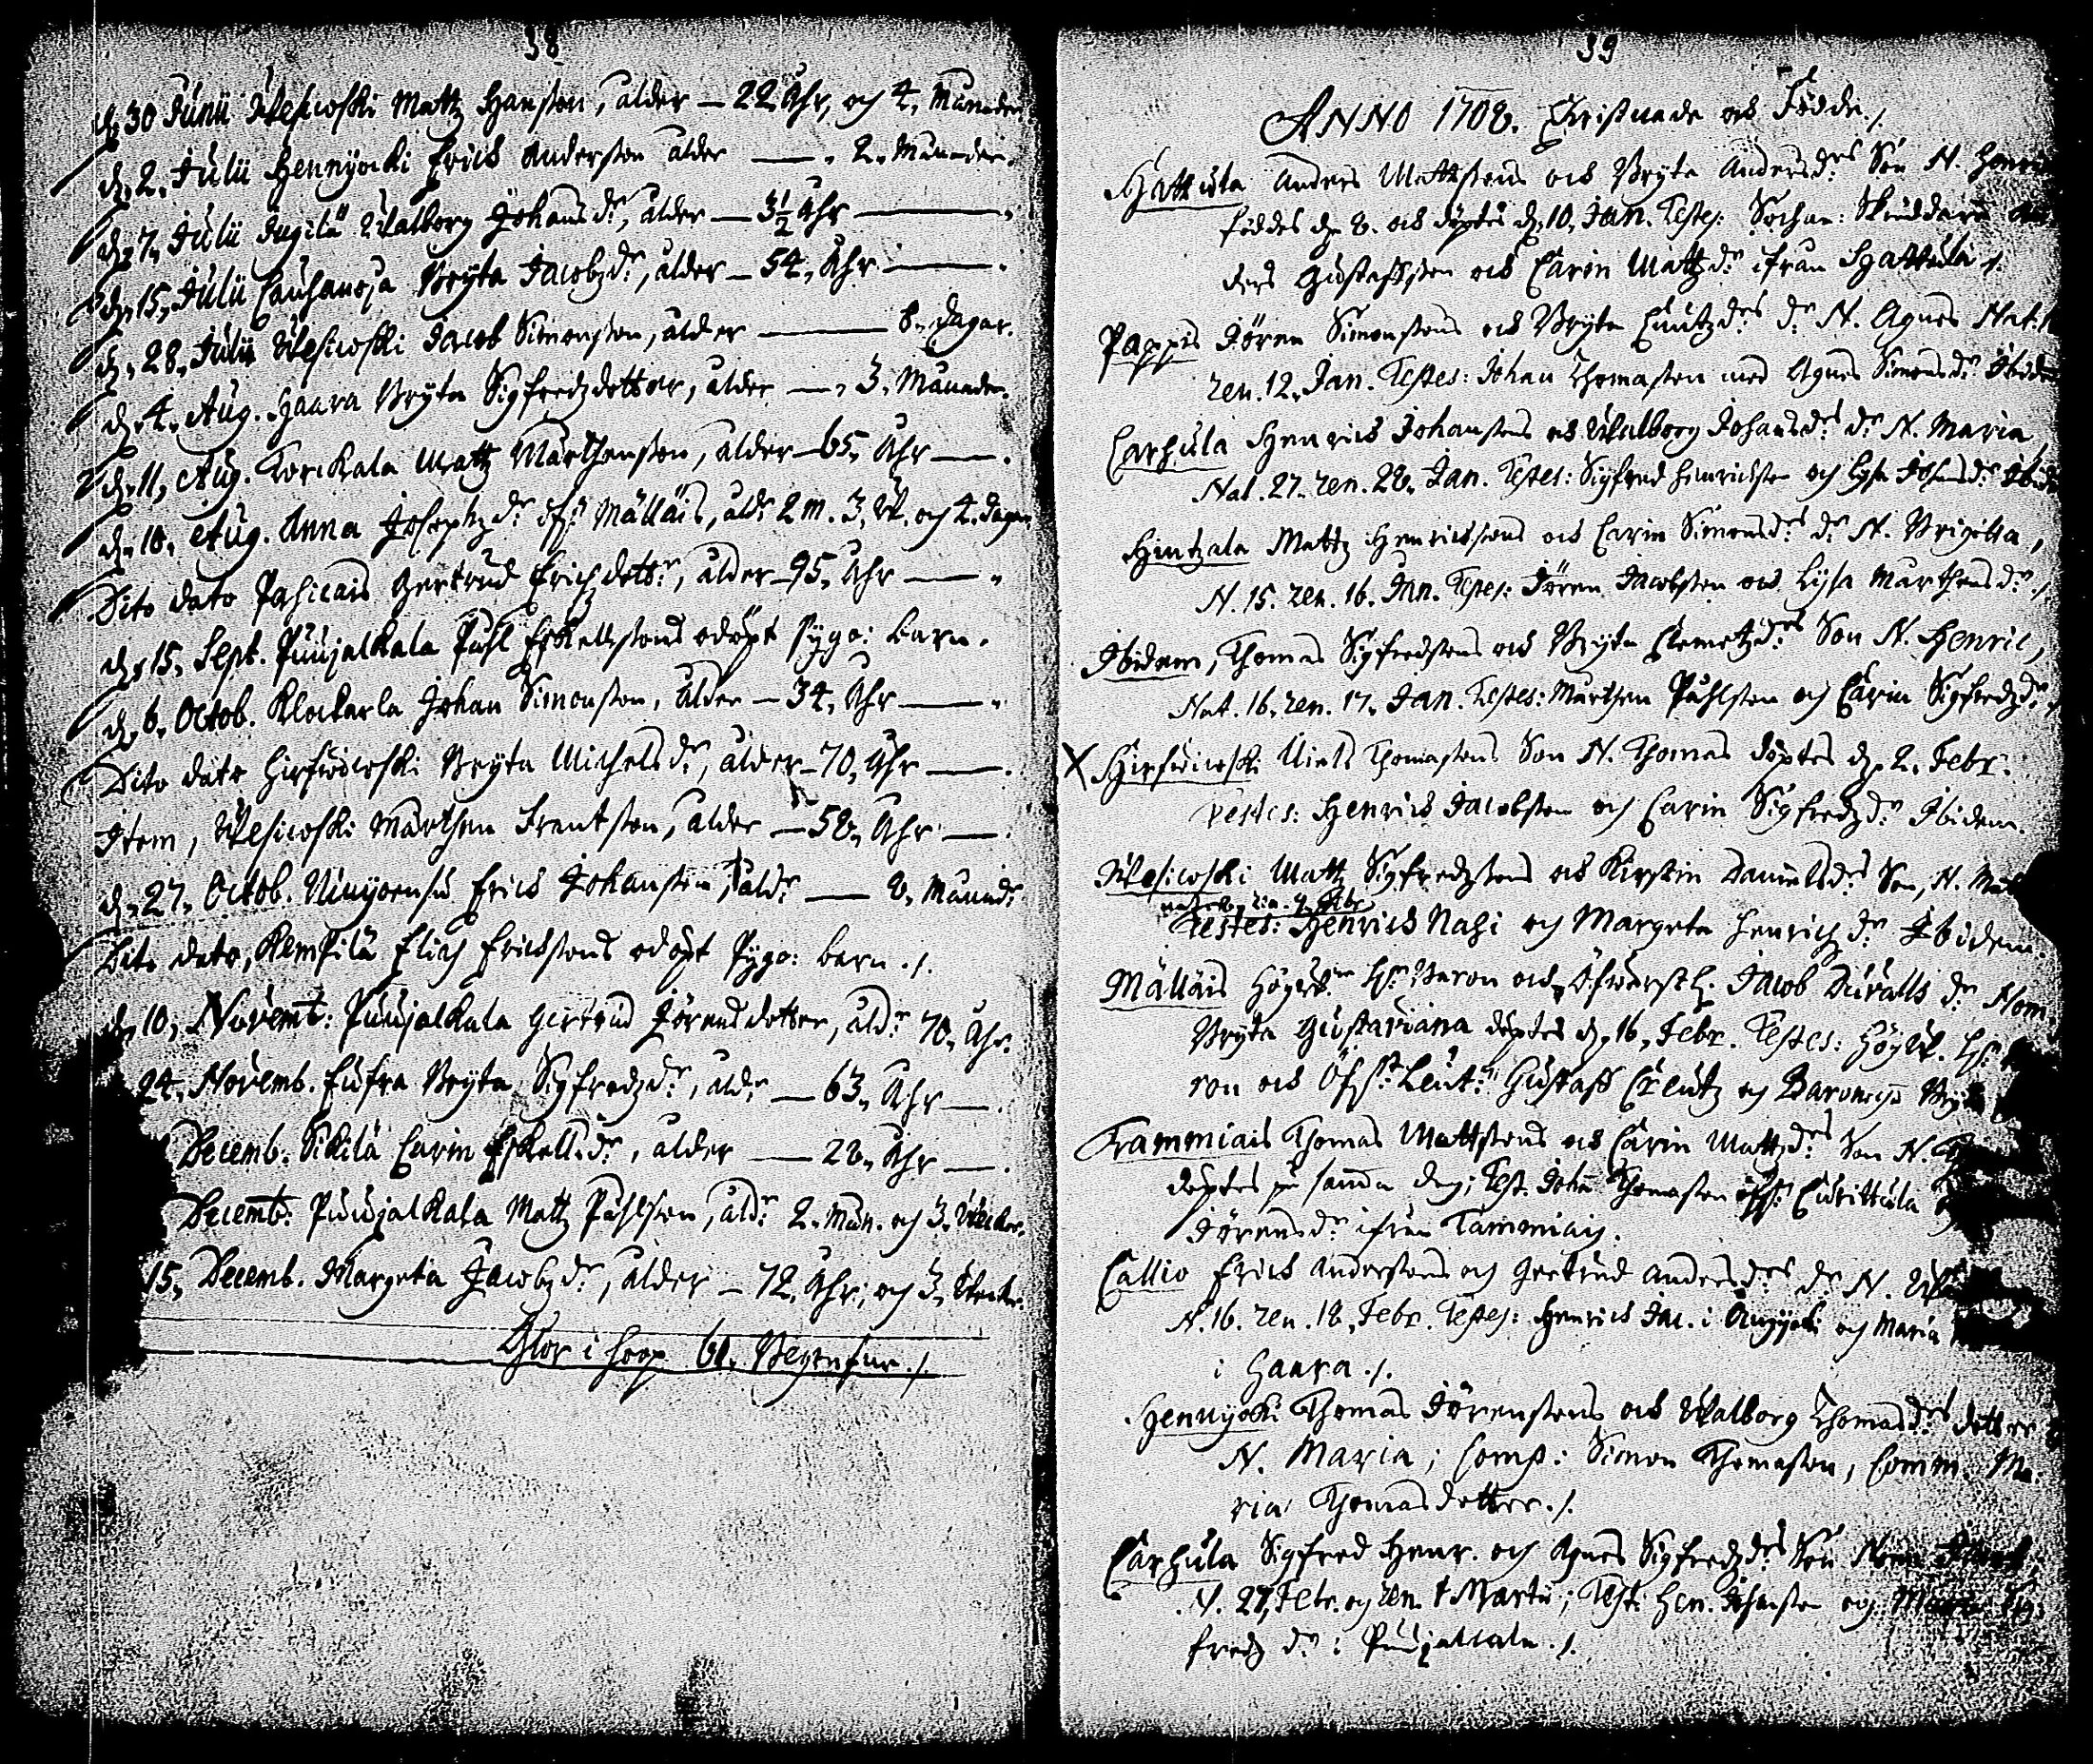 38
d. 30 Junii Wesikoski Mattz Hansson, ålder — 22 Åhr, och 4. Månader
d. 2. Julii Hennijoki Erick Andersson ålder — 2. Månader.
d. 7. Julii Walborg Johansdr, ålder — 3½ Åhr —
d. 15. Julii Bryta Jacobzdr, ålder — 54. Åhr —
d. 28. Julii Wesikoski Jacob Simonsson, ålder — 8. dagar.
d. 4. Aug. Haara Bryta Sigfredzdotter, ålder — 3. Månader.
d. 11. Aug. Torckala Mattz Mårthensson, ålder — 65. Åhr —
d. 18. Aug. Anna Josephzdr ifr. Mälläis, åldr 2 m. 3. W. och 4. dagar
Dito dato Pahicais Gertrud Erichzdottr, ålder — 95. Åhr —
d. 15. Sept. Puujalkala Påhl Eskellssons odöpt pygo: barn.
d. 6. Octob. Klockarla Johan Simonsson, ålder — 34. Åhr —
Dito dato Hirsiwoioski Bryta Michelsdr, ålder — 70. Åhr —
Item, Wesikoski Mårthen Frantsson, ålder — 58. Åhr —
d. 27. Octob. Erick Johansson, åldr — 8. Månadr
Dito dato, Kempilä Elich Erickssons odöpt pygo: barn ./.
d. 10. Novemb: Puujalkala Gertrud Jörensdotter, åldr 70. Åhr.
24. Novemb. Eufra Bryta Sigfredzdr, åldr — 63. Åhr —
Decemb. Sikilä Carin Eskellsdr, ålder — 28. Åhr —
Decemb: Puujalkala Mattz Påhlsson, åldr 2. Mån. och 3. Weckor.
15. Decemb. Margeta Jacobzdr, ålder — 72. Åhr, och 3. Weckor.
i hoop 61. ./.
39
ANNO 1708. Christnade och Födde ./.
Hattula Anders Mattssons och Bryta Andersdrs Son N. Henric
föddes d. 8. och döptes d. 10. Jan. Testes: Sochne: Skräddaren An
ders Gustafsson och Carin Mattzdr ifrån Hattula ./.
Pappis Jören Simonssons och Bryta Cnutzdrs dr N. Agnes Nat.
ren. 12. Jan. Testes: Johan Thomasson med Agnes Simonsdr Ibidem
Carhula Henrick Johanssons och Walborg Johansdrs dr N. Maria
Nat. 27. ren. 28. Jan. Testes: Sigfred Hinrichsson och Lysa Johansdr Ibid
Hintzala Mattz Henrickssons och Carin Simonsdrs dr N. Brigitta,
N. 15. ren. 16. Jan. Testes: Jören Jacobsson och Lysa Mårthensdr ./.
Ibidem, Thomas Sigfredssons och Bryta Clemetzdrs Son N. Henric,
Nat. 16. ren. 17. Jan. Testes: Mårthen Påhlsson och Carin Sigfredzdr
X Hirsiwoioski Niels Thomassons Son N. Thomas döptes d. 2. Febr.
Testes: Henrick Jacobsson och Carin Sigfredzdr Ibidem.
Wesikoski Mattz Sigfredzsons och Kirstin Danielsdrs Son, N.
ren. 9. Febr.
Testes: Henrick Nasi och Margeta Henrichzdr Ibidem.
Mälläis Högwelb. Hr. Baron och Öfwerste H. Jacob Duralls dr Nom.
Bryta Gustaviana döptes d. 16. Febr. Testes: Högw. Hr.
ron och Öfst. Leut: Gustaff Creutz och Baroness Bryta
Tammiais Thomas Mattssons och Carin Mattzdrs Son N.
döptes på samma dag; Test. Johan Thomasson ifr. Curittula
Jörensdr ifrån Tammiais.
Callio Erick Anderssons och Gertrud Andersdrs dr N.
N. 16. ren. 18. Febr. Testes: Henrick Jac. i och Maria
i Haara ./.
Hennijoki Thomas Jörenssons och Walborg Thomasdrs dotter
N. Maria; Comp: Simon Thomasson, Comm. Ma-
ria Thomasdotter ./.
Carhula Sigfred Henr. och Agnes Sigfredzdrs Son Nom
N. 27. Febr. och ren. 1 Martii; Test: Hen. Johansson och Sig-
fredz dr i Puujalkala ./.